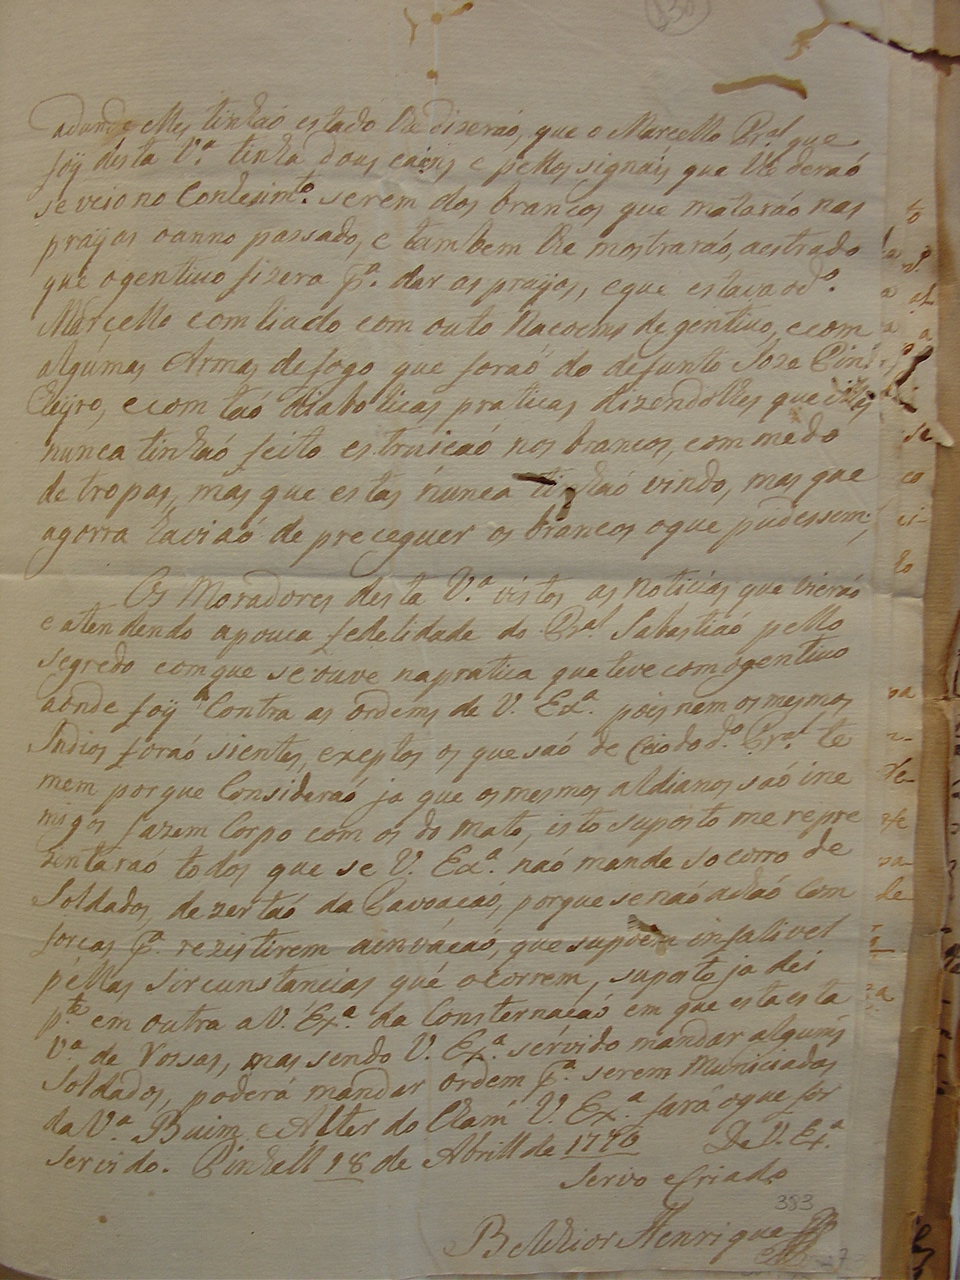 adunde elles tinhaó estado lhe diseraó, que o Marcello Pr.al que
foy desta V.ª tinha dous cains e pellos signais que lhe deraó
se veio no Conhesim.to serem dos brancos que mataraó nas
prayas oanno passado, e tambem lhe mostraraó, aestrado
que ogentiuo fizera p.ª dar as prayas, eque estava od.º
Marcello comliado com outo Nacoens de gentiuo, ecom
algúmas Armas defogo que foraó do defunto Joze Pin
heyro, ecom taó diabolicas praticas dizendolhes que elles
nunca tinhaó feito estruicaó nos brancos, com medo
de tropas, mas que estas nunca tinhaó vindo, mas que
agorra haviaó de preceguer os brancos oque pudessem;
Os Moradores desta V.ª vistos as noticias que vieraó
e atendendo apouca fedelidade do Pr.al Sabastiaó pello
segredo comque se ouve napratica que teve comogentiuo
aonde foy Contra as ordens de V. Ex.ª pois nem osmesmos
Indios foraó sientes, exeptos os que saó de do d.º Pr.al te
mem porque Consideraó ja que osmesmos aldianos saó ine
migos fazem Corpo com os do mato, isto suposto me repre
zentaraó todos que se V. Ex.ª naó mande socorro de
Soldados, dezertaó da Pavoacaó, porque senaó achaó com
forcas p.ª rezistirem ainvacaó, que supoem infalivel
pellas sircunstancias que ocorrem, suposto ja dei
p.te em outra a V. Ex.ª da Consternacaó em que esta esta
V.ª de Vossas, mas sendo V. Ex.ª servido mandar alguns
Soldados, poderá mandar ordem p.ª serem Municiados
da V.ª Buim e Alter do Cham V. Ex.ª fará oque for
servido. Pinhell 18 de Abrill de 1776 De V. Ex.ª
Servo e Criado
383
Belchior Henrique